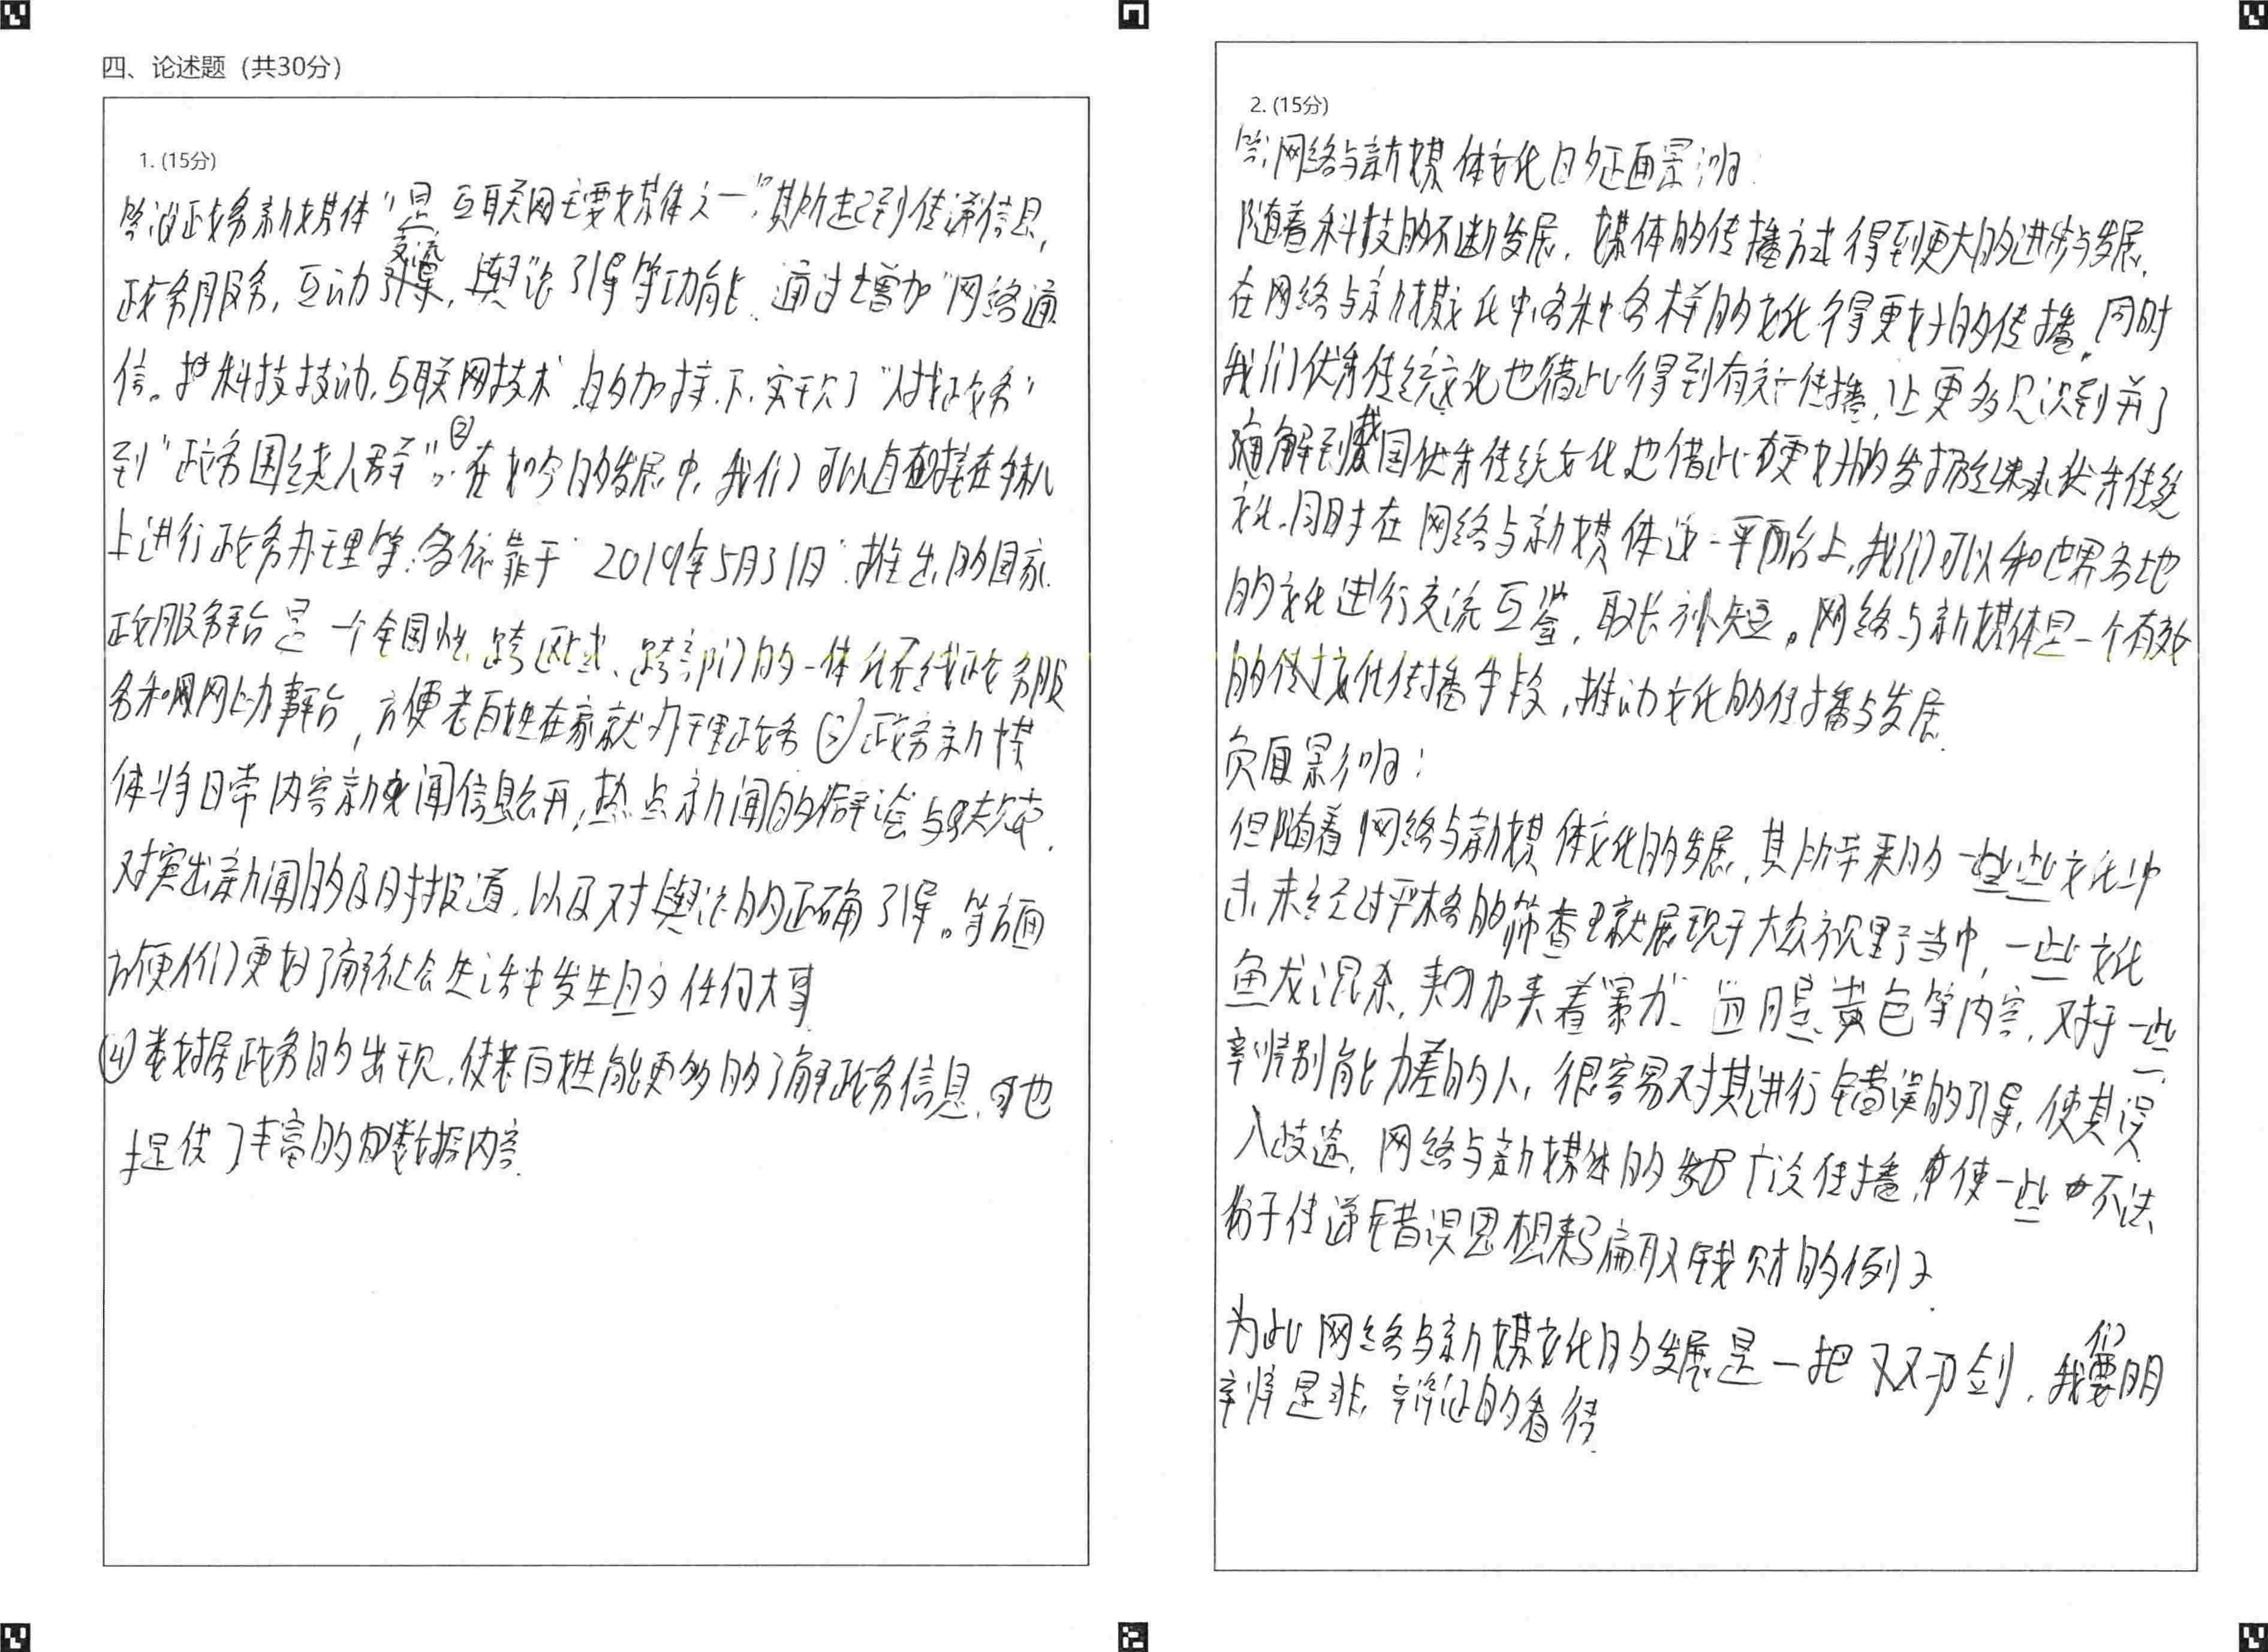 四、论述题（共30分）
1. (15分)
政务新媒体"是互联网主要媒体之一",其所起到传递信息,
交流
政务服务,互动,舆论引导等功能.通过增加"网络通
信。科技技动,互联网技术"的加持下,实现了"人找政务"
到"政务围绕人群"。②在如今的发展中,我们可以直接在手机
上进行政务办理等.依靠于"2019年5月31日"推出的国家
政服务平台是一个全国性、跨区域、跨部门的一体化在线政务服
务和网上办事平台,方便老百姓在家就办理政务③政务新媒
体将日常内容新闻信息公开,热点新闻的辟谣与
对突出新闻的及时报道,以及对舆论的正确引导。等方面
方便人们更好了解社会生活中发生的任何大事
④数据政务的出现,使老百姓能更多的了解政务信息,也
提供了丰富的数据内容.
2. (15分)
答:网络与新媒体文化的正面影响:
随着科技的不断发展,媒体的传播方式得到更大的进步与发展.
在网络与新媒文化中,各种各样的文化得更好的传播。同时
我们优秀传统文化也借此得到有效传播,让更多见识到并了
解到我国优秀传统文化也借此更好的发扬继承优秀传统
文化.同时在网络与新媒体这一平台上,我们可以和世界各地
的文化进行交流互鉴,取长补短。网络与新媒体是一个有效
的文化传播手段,推动文化的传播与发展.
负面影响:
但随着网络与新媒体文化的发展,其所带来的一些文化冲
击,未经过严格的筛查就展现于大众视野当中,一些文化
鱼龙混杂,加夹着暴力、血腥、黄色等内容,对于一些
辨别能力差的人,很容易对其进行错误的引导,使其误
入歧途,网络与新媒体的广泛传播,使一些不法
份子传递错误思想骗取钱财的例子.
为此网络与新媒文化的发展是一把双刃剑,我们要明
辨是非,辩证的看待.